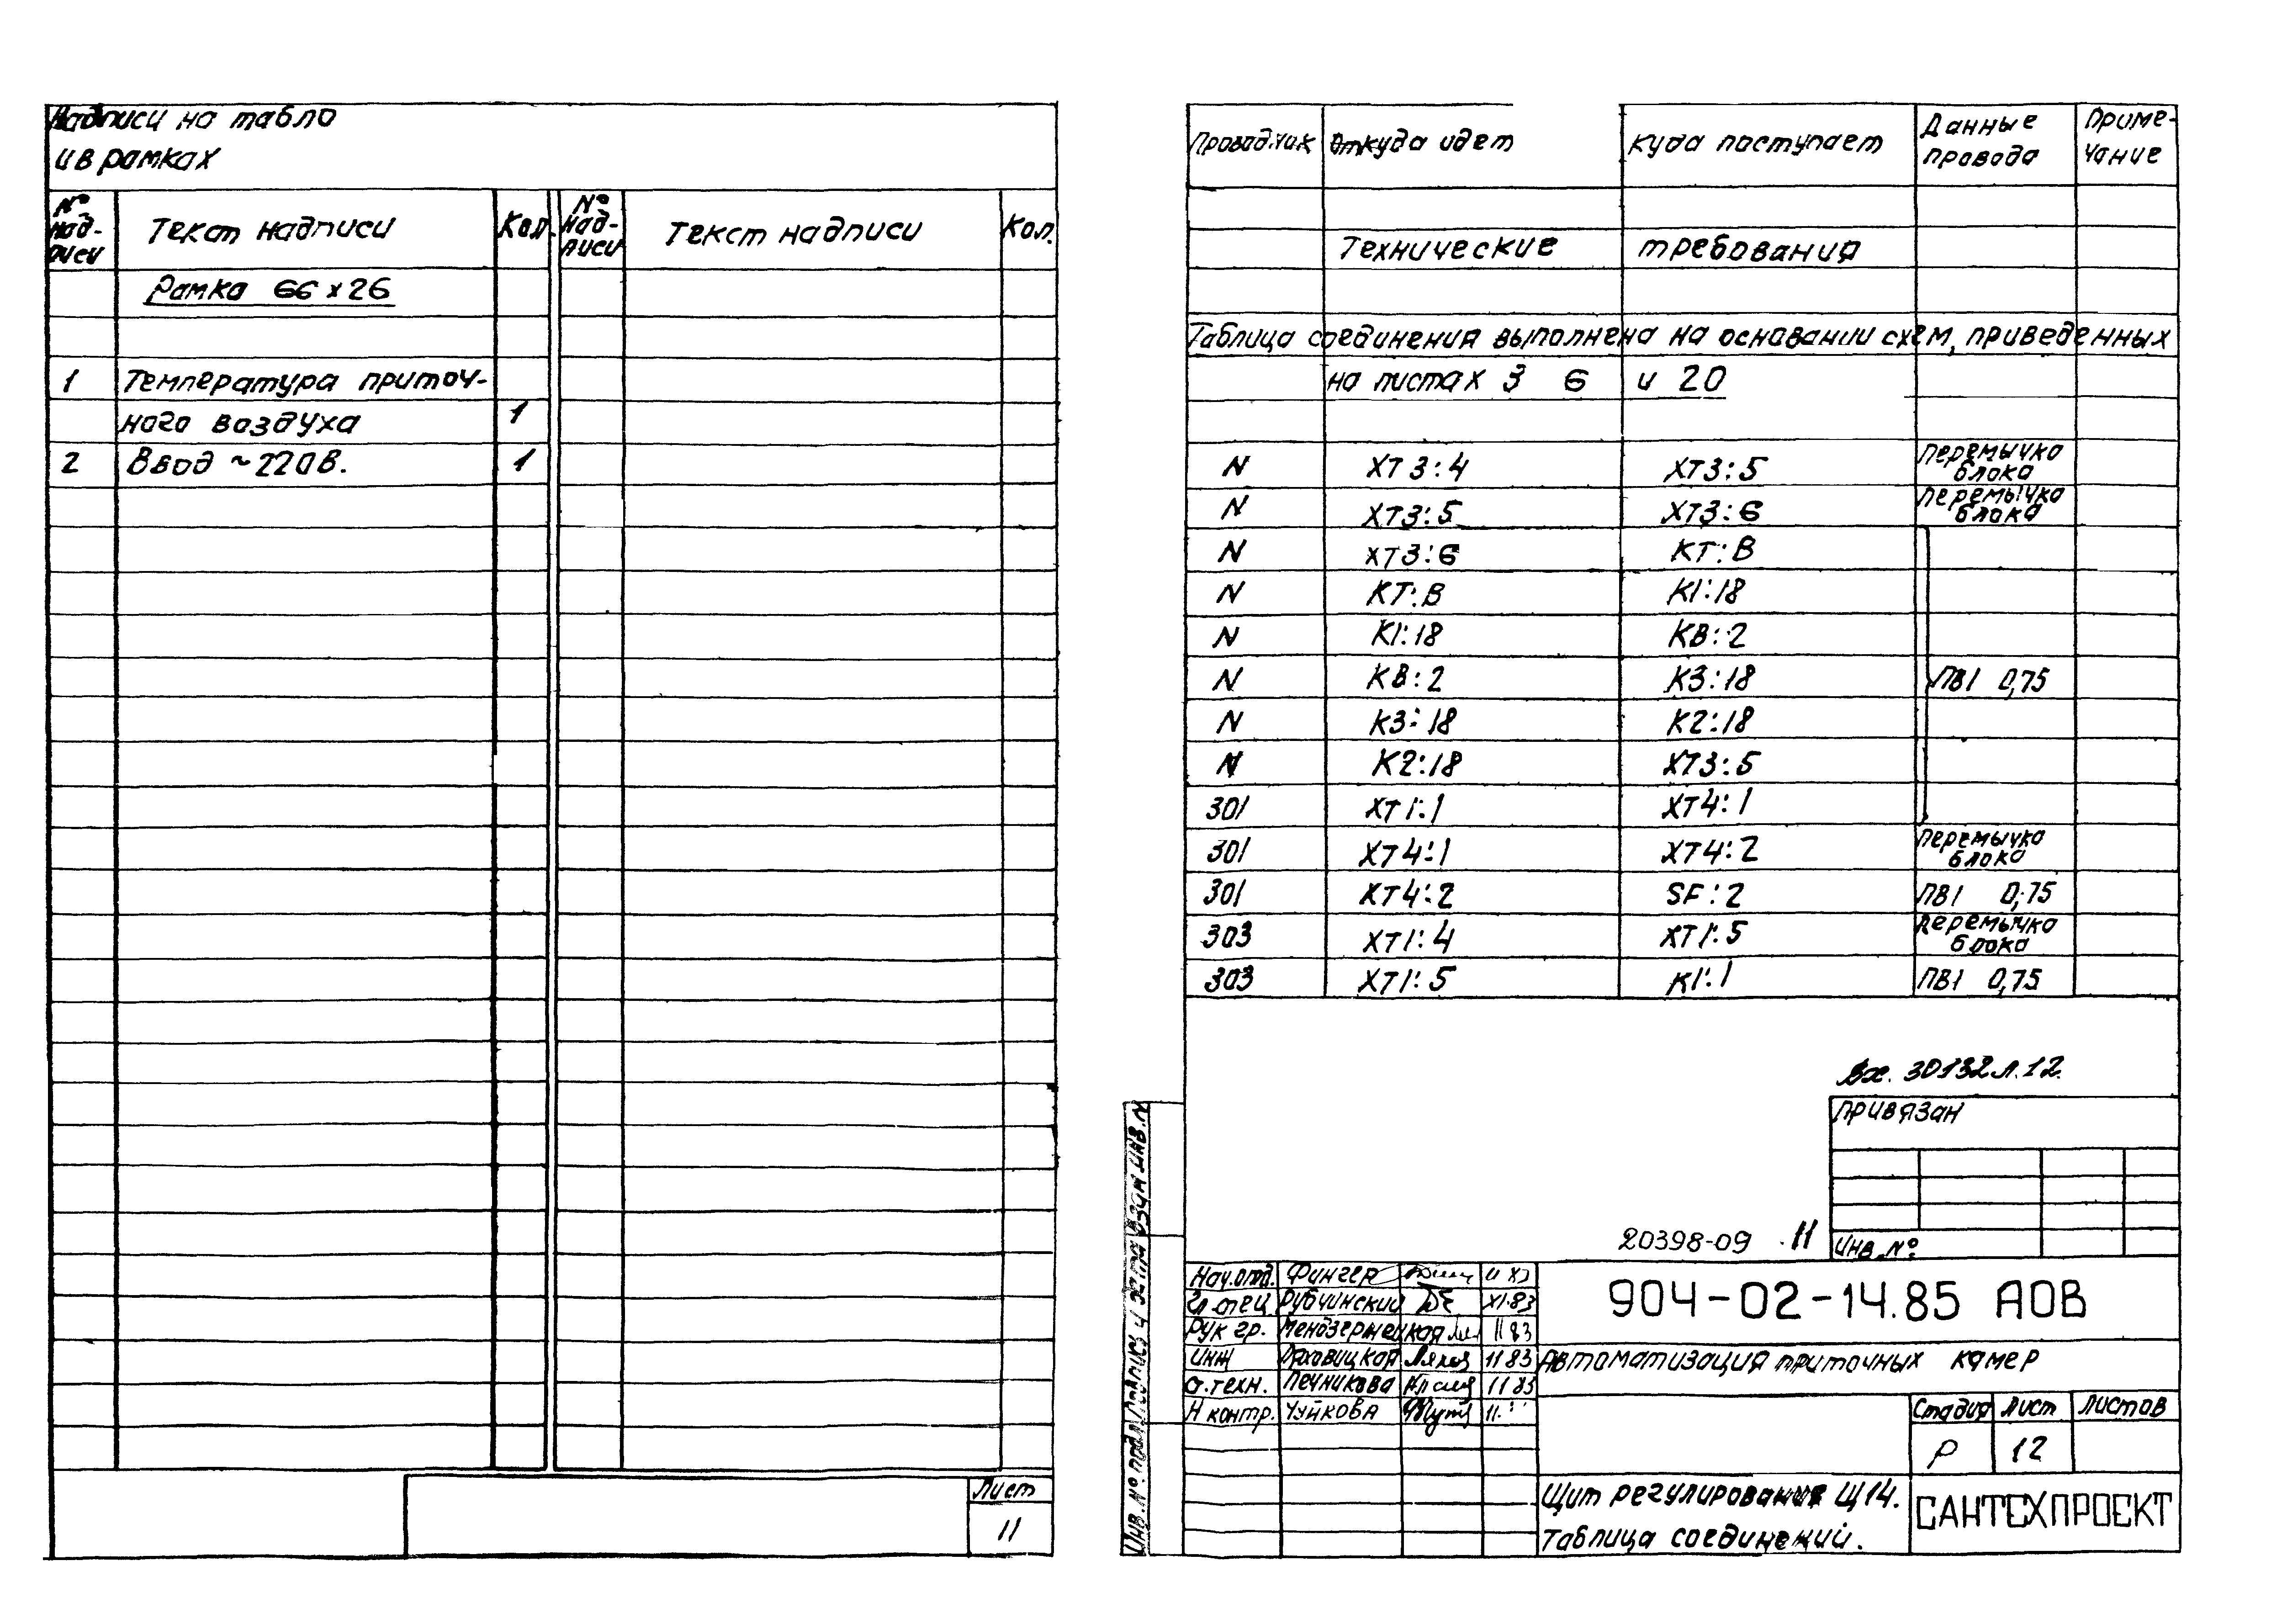 Надписи на табло
и в рамках
№ над-писи Текст надписи Кол. № над-писи Текст надписи Кол.
Рамка 66 х 26
1 Температура приточ-
ного воздуха 1
2 Ввод ~220В. 1
Лист
11
Проводник Откуда идет Куда поступает Данные провода Приме-чание
Технические требования
Таблица соединения выполнена на основании схем, приведенных
на листах 3 6 и 20
N XT3:4 XT3:5 Перемычка блока
N XT3:5 XT3:6 Перемычка блока
N XT3:6 KT:B
N KT:B K1:18
N K1:18 KB:2
N KB:2 K3:18 ПВ1 0,75
N K3:18 K2:18
N K2:18 XT3:5
301 XT1:1 XT4:1
301 XT4:1 XT4:2 Перемычка блока
301 XT4:2 SF:2 ПВ1 0,75
303 XT1:4 XT1:5 Перемычка блока
303 XT1:5 K1:1 ПВ1 0,75
Вх. 30132 л.12
Привязан
20398-09 11
Инв.№
Инв.№ подл. Подпись и дата Взам инв.N
Нач.отд. Фингер
904-02-14.85 АОВ
Гл спец Рубчинский XI.83
Рук гр. 11 83
Инж 11 83
Автоматизация приточных камер
с.техн. Печникова 11 83
Н контр. Чуйкова 11.
Стадия Лист Листов
Р 12
Щит регулирования Щ14.
Таблица соединений.
САНТЕХПРОЕКТ